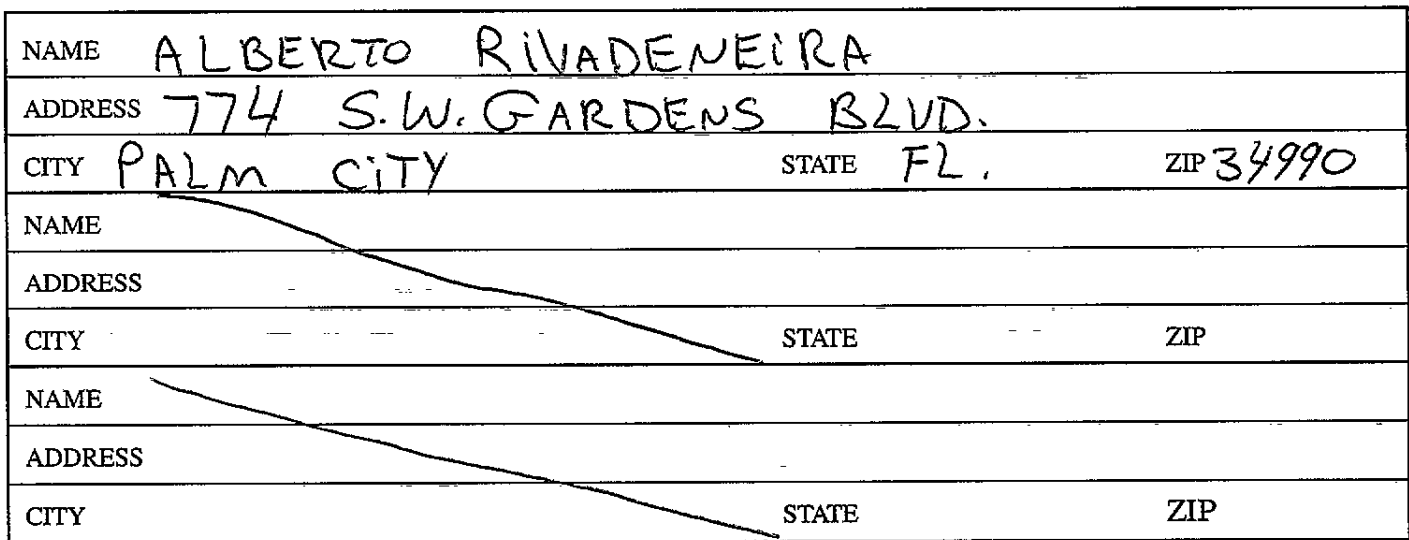 NAME ALBERTO RiVADENEiRA
ADDRESS 774 S.W. GARDENS BLVD.
CITY PALM CiTY STATE FL. ZIP 34990
NAME
ADDRESS
CITY STATE ZIP
NAME
ADDRESS
CITY STATE ZIP